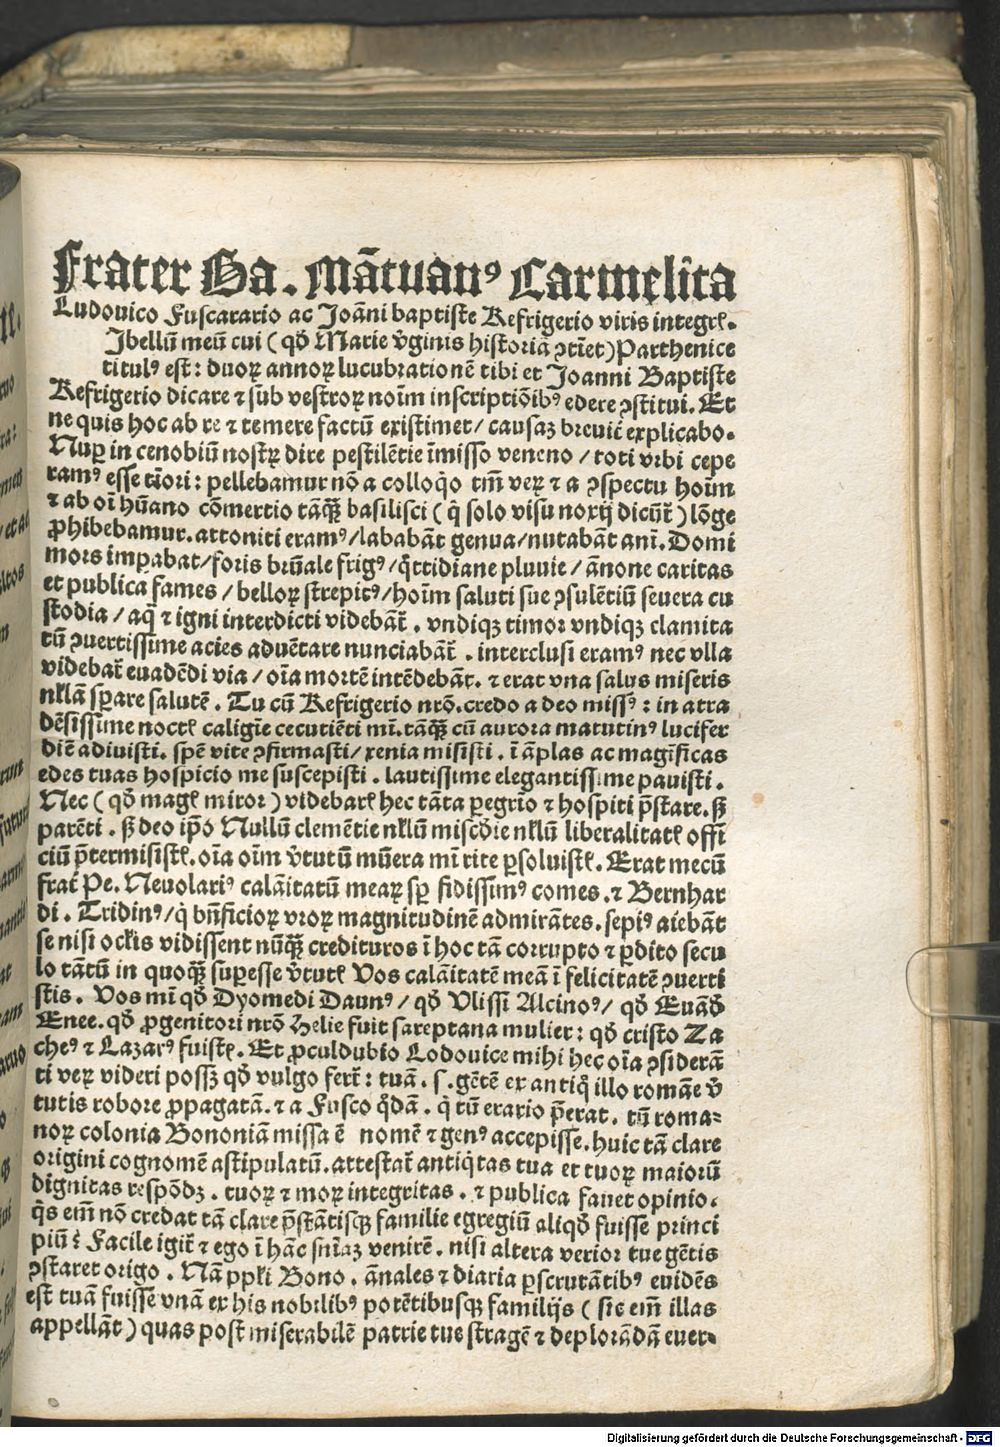 Frater Ba. Mãtuanꝰ Carmelita
Ludouico Fuscarario ac Joãni baptiste Refrigerio viris integrꝭ.
Jbellũ meũ cui ( qđ Marie v̔ginis historiã ꝯtinet) Parthenice
titulꝰ est: duoꝝ annoꝝ lucubrationẽ tibi et Joanni Baptiste
Refrigerio dicare ⁊ sub vestroꝝ noĩm inscriptiõibꝰ edere ꝯstitui. Et
ne quis hoc ab re ⁊ temere factũ existimet/ causaꝫ breuit̃ explicabo.
Nuꝑ in cenobiũ nostꝝ dire pestilẽtie ĩmisso veneno / toti vrbi cepe
ramꝰ esse t̃iori: pellebamur nõ a colloq̊o tm̃ veꝝ ⁊ a ꝯspectu hoĩm
⁊ ab oĩ hũano cõmertio tãqꝫ̃ basilisci ( q̇ solo visu noxij dicũt̃ ) lõge
ꝓhibebamur. attoniti eramꝰ/lababãt genua/nutabãt anĩ. Domi
mors imꝑabat/foris brũale frigꝰ/q̇ttidiane pluuie / ãnone caritas
et publica fames / belloꝝ strepitꝰ/hoĩm saluti sue ꝯsulẽtiũ seuera cu
stodia / aq̃ ⁊ igni interdicti videbãt̃ . vndiqꝫ timor vndiqꝫ clamita
tũ ꝯuertissime acies aduẽtare nunciabãt̃ . interclusi eramꝰ nec vlla
videbat̃ euadẽdi via / oĩa mortẽ intẽdebãt. ⁊ erat vna salus miseris
nłlã sꝑare salutẽ . Tu cũ Refrigerio nr̃o.credo a deo missꝰ : in atra
dẽsissime noctꝭ caligĩe cecutiẽti mĩ.tãqꝫ̃ cũ aurora matutinꝰ lucifer
diẽ adiuisti. spẽ vite ꝯfirmasti/ xenia misisti . ĩ ãplas ac magĩficas
edes tuas hospicio me suscepisti . lautissime elegantissime pauisti .
Nec ( qđ magꝭ miror ) videbarꝭ hec tãta ꝑegrĩo ⁊ hospiti p̃stare. sꝫ
parẽti . sꝫ deo ip̃o Nullũ clemẽtie nłlũ misc̃die nłlũ liberalitatꝭ offi
ciũ p̃termisistꝭ. oĩa oĩm v̔tutũ mũera mĩ rite ꝑsoluistꝭ. Erat mecũ
frat̃ Pe. Neuolariꝰ calãitatũ meaꝝ sꝑ fidissimꝰ comes. ⁊ Bernhar
di . Tridinꝰ/ q̇ bñficioꝝ vr̃oꝝ magnitudinẽ admirãtes. sepiꝰ aiebãt
se nisi ocłis vidissent nũqꝫ̃ credituros ĩ hoc tã corrupto ⁊ ꝑdito secu
lo tãtũ in quoqꝫ̃ suꝑesse v̔tutꝭ Vos calãitatẽ meã ĩ felicitatẽ ꝯuerti
stis . Vos mĩ qđ Dyomedi Daunꝰ/ qđ Vlissi Alcinoꝰ/ qđ Euãđ
Enee. qđ ꝓgenitori nr̃o Helie fuit sareptana mulier: qđ cristo Za
cheꝰ ⁊ Lazarꝰ fuistꝭ. Et ꝓculdubio Lodouice mihi hec oĩa ꝯsiderã
ti veꝝ videri possꝫ qđ vulgo fert̃ : tuã . s . gẽtẽ ex antiq̊ illo romãe v̔
tutis robore ꝓpagatã. ⁊ a Fusco q̊dã . q̇ tũ erario p̃erat . cũ roma⸗
noꝝ colonia Bononiã missa ẽ nomẽ ⁊ genꝰ accepisse. huic tã clare
origini cognomẽ astipulatũ. attestat̃ antiq̇tas tua et tuoꝝ maiorũ
dignitas respõdꝫ . tuoꝝ ⁊ moꝝ integritas . ⁊ publica fauet opinio.
q̇s em̃ nõ credat tã clare p̃stãtisqꝫ familie egregiũ aliqđ fuisse princi
piũ? Facile igit̃ ⁊ ego ĩ hãc sñiaꝫ venirẽ. nisi altera verior tue gẽtis
ꝯstaret origo . Nã ppłi Bono . ãnales ⁊ diaria ꝑscrutãtibꝰ euidẽs
est tuã fuisse vnã ex his nobilibꝰ potẽtibusqꝫ familijs ( sic em̃ illas
appellãt ) quas post miserabilẽ patrie tue stragẽ ⁊ deplorãdã euer⸗
Digitalisierung gefördert durch die Deutsche Forschungsgemeinschaft - DFG